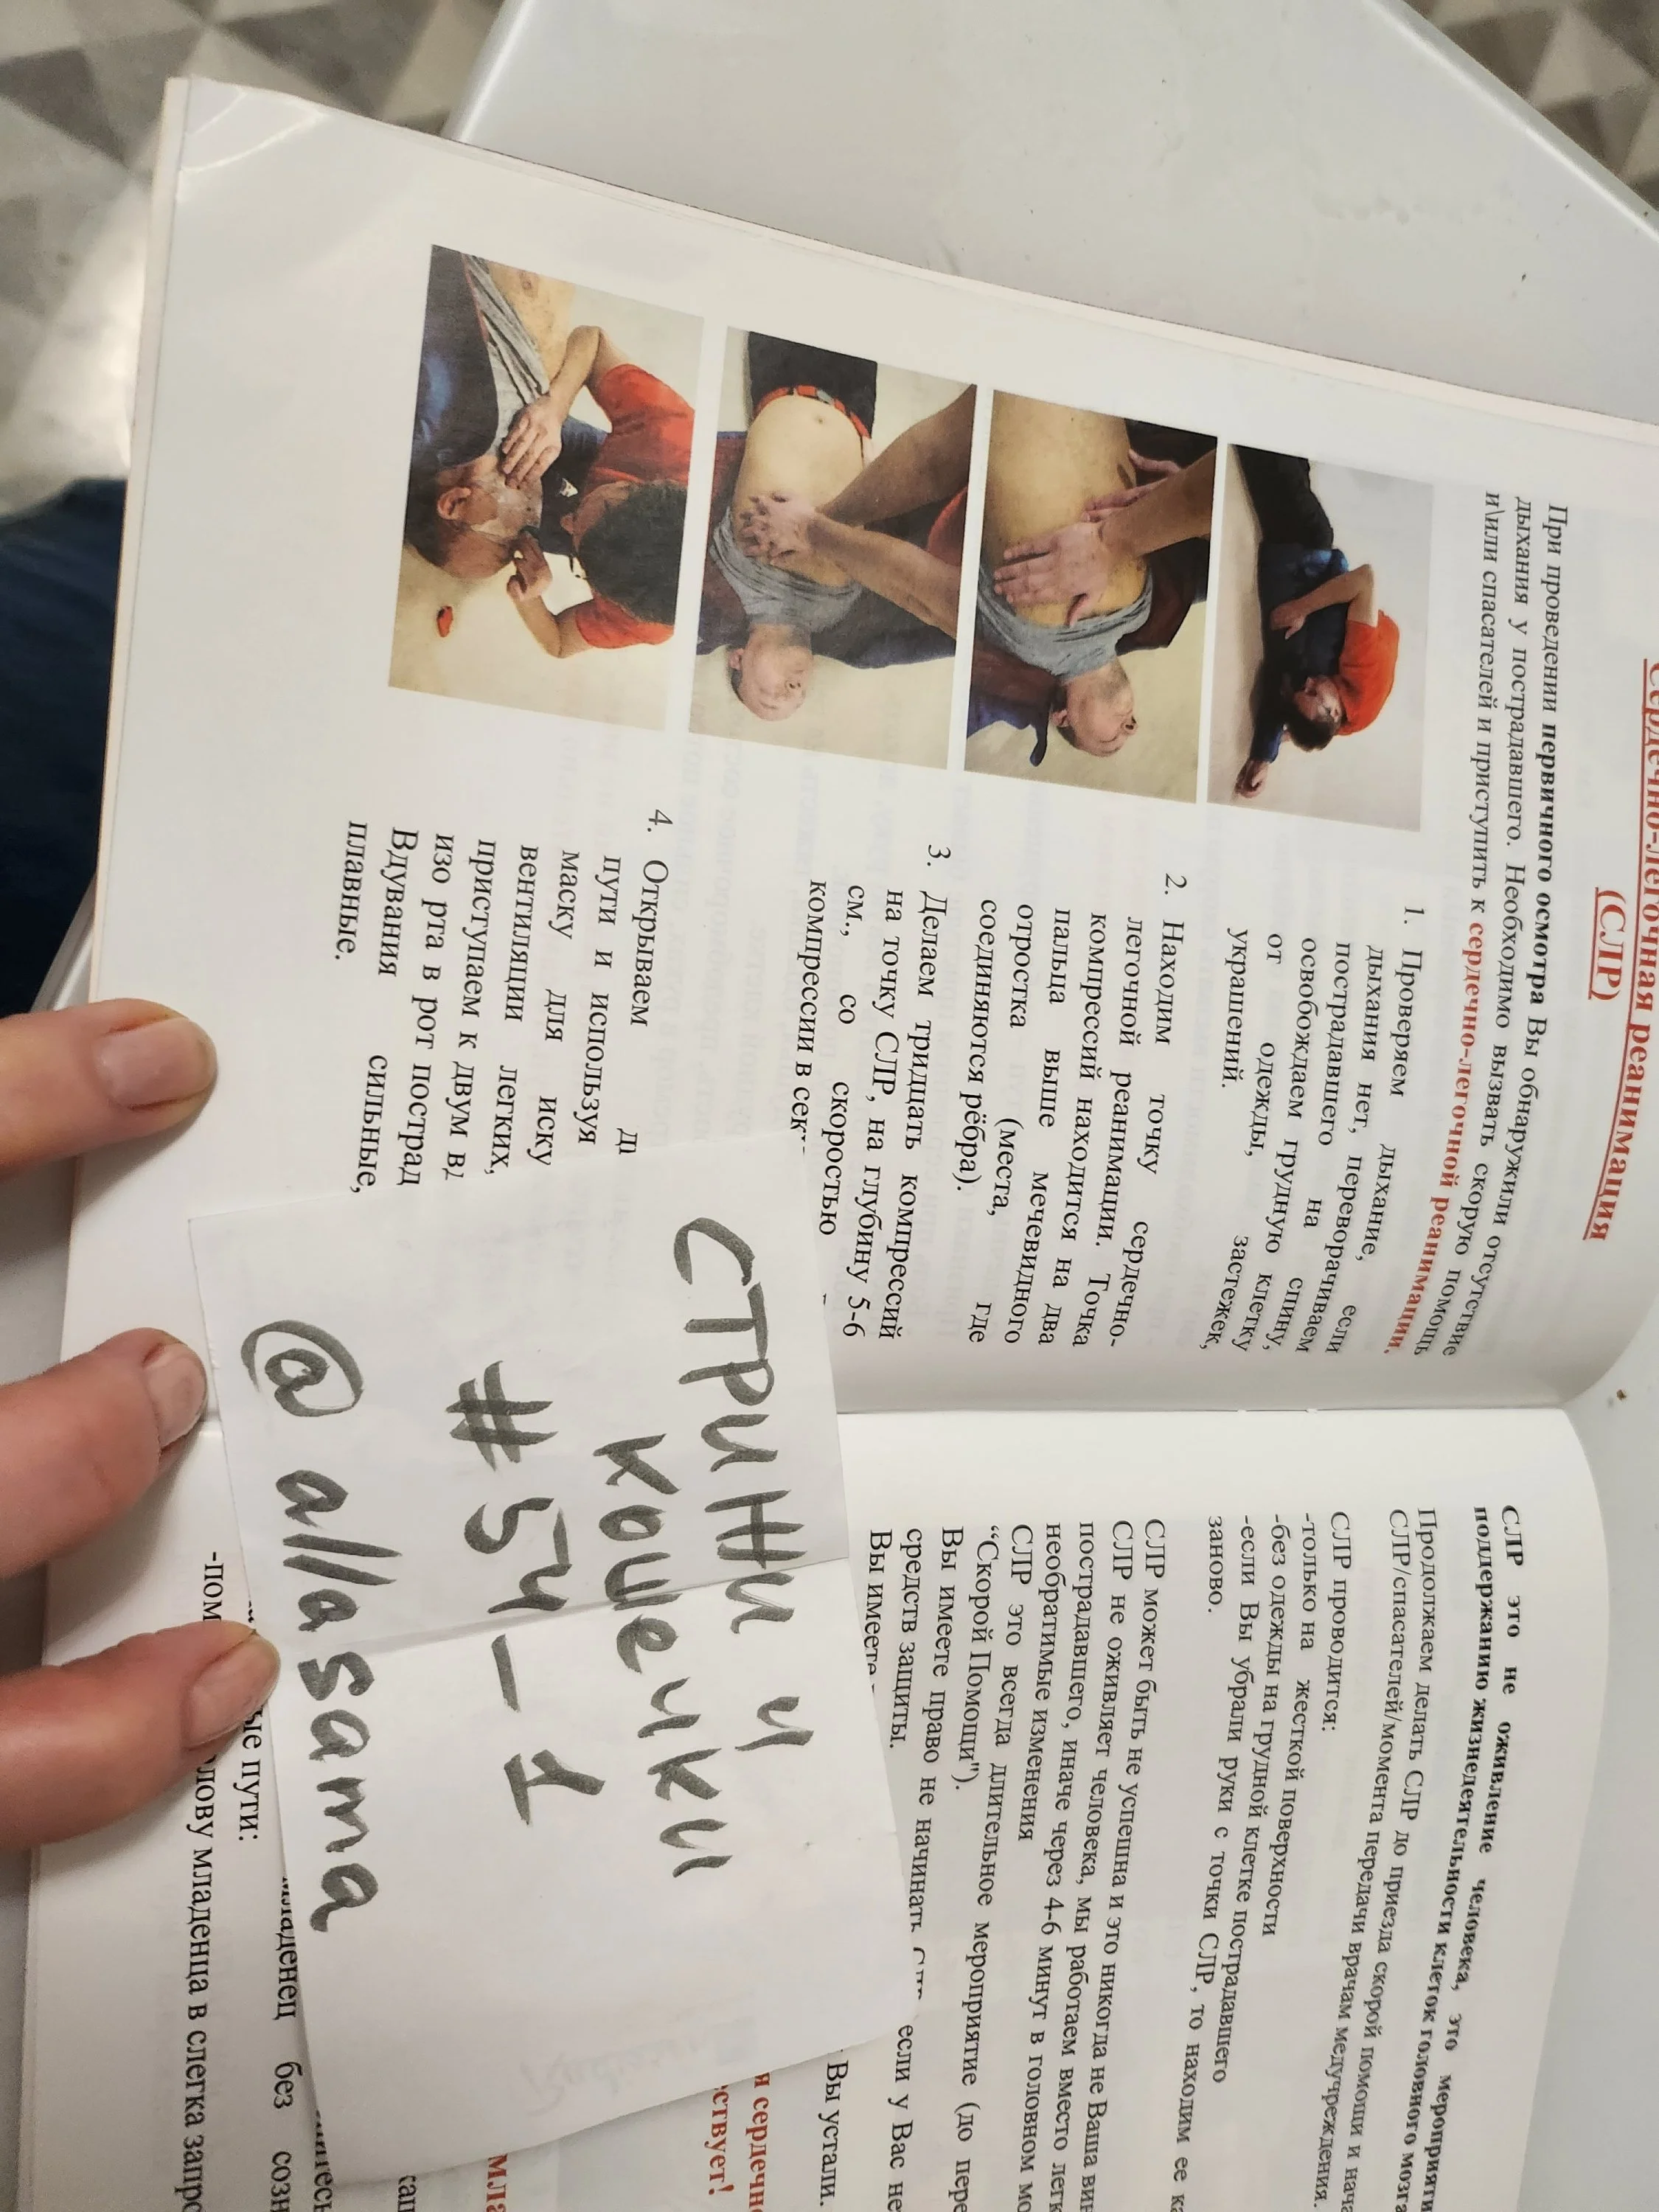 Сердечно-легочная реанимация
(СЛР)
При проведении первичного осмотра Вы обнаружили отсутствие
дыхания у пострадавшего. Необходимо вызвать скорую помощь
и\или спасателей и приступить к сердечно-легочной реанимации.
1. Проверяем дыхание, если
дыхания нет, переворачиваем
пострадавшего на спину,
освобождаем грудную клетку
от одежды, застежек,
украшений.
2. Находим точку сердечно-
легочной реанимации. Точка
компрессий находится на два
пальца выше мечевидного
отростка (места, где
соединяются рёбра).
3. Делаем тридцать компрессий
на точку СЛР, на глубину 5-6
см., со скоростью
компрессии в сек
4. Открываем
пути и используя
маску для иску
вентиляции легких,
приступаем к двум
изо рта в рот пострад
Вдувания сильные,
плавные.
СТРИЖИ И
КОШЕЧКИ
#54-1
@allasama
СЛР это не оживление человека, это мероприяти
поддержанию жизнедеятельности клеток головного мозга
Продолжаем делать СЛР до приезда скорой помощи и нача
СЛР/спасателей/момента передачи врачам медучреждения.
СЛР проводится:
-только на жесткой поверхности
-без одежды на грудной клетке пострадавшего
-если Вы убрали руки с точки СЛР, то находим ее
заново.
СЛР может быть не успешна и это никогда не Ваша
СЛР не оживляет человека, мы работаем вместо
пострадавшего, иначе через 4-6 минут в головном
необратимые изменения
СЛР это всегда длительное мероприятие (до
“Скорой Помощи").
Вы имеете право не начинать если у Вас
средств защиты.
Вы имеете Вы устали.
я сердечн
ствует!
младенец без
ые пути:
-пом лову младенца в слегка